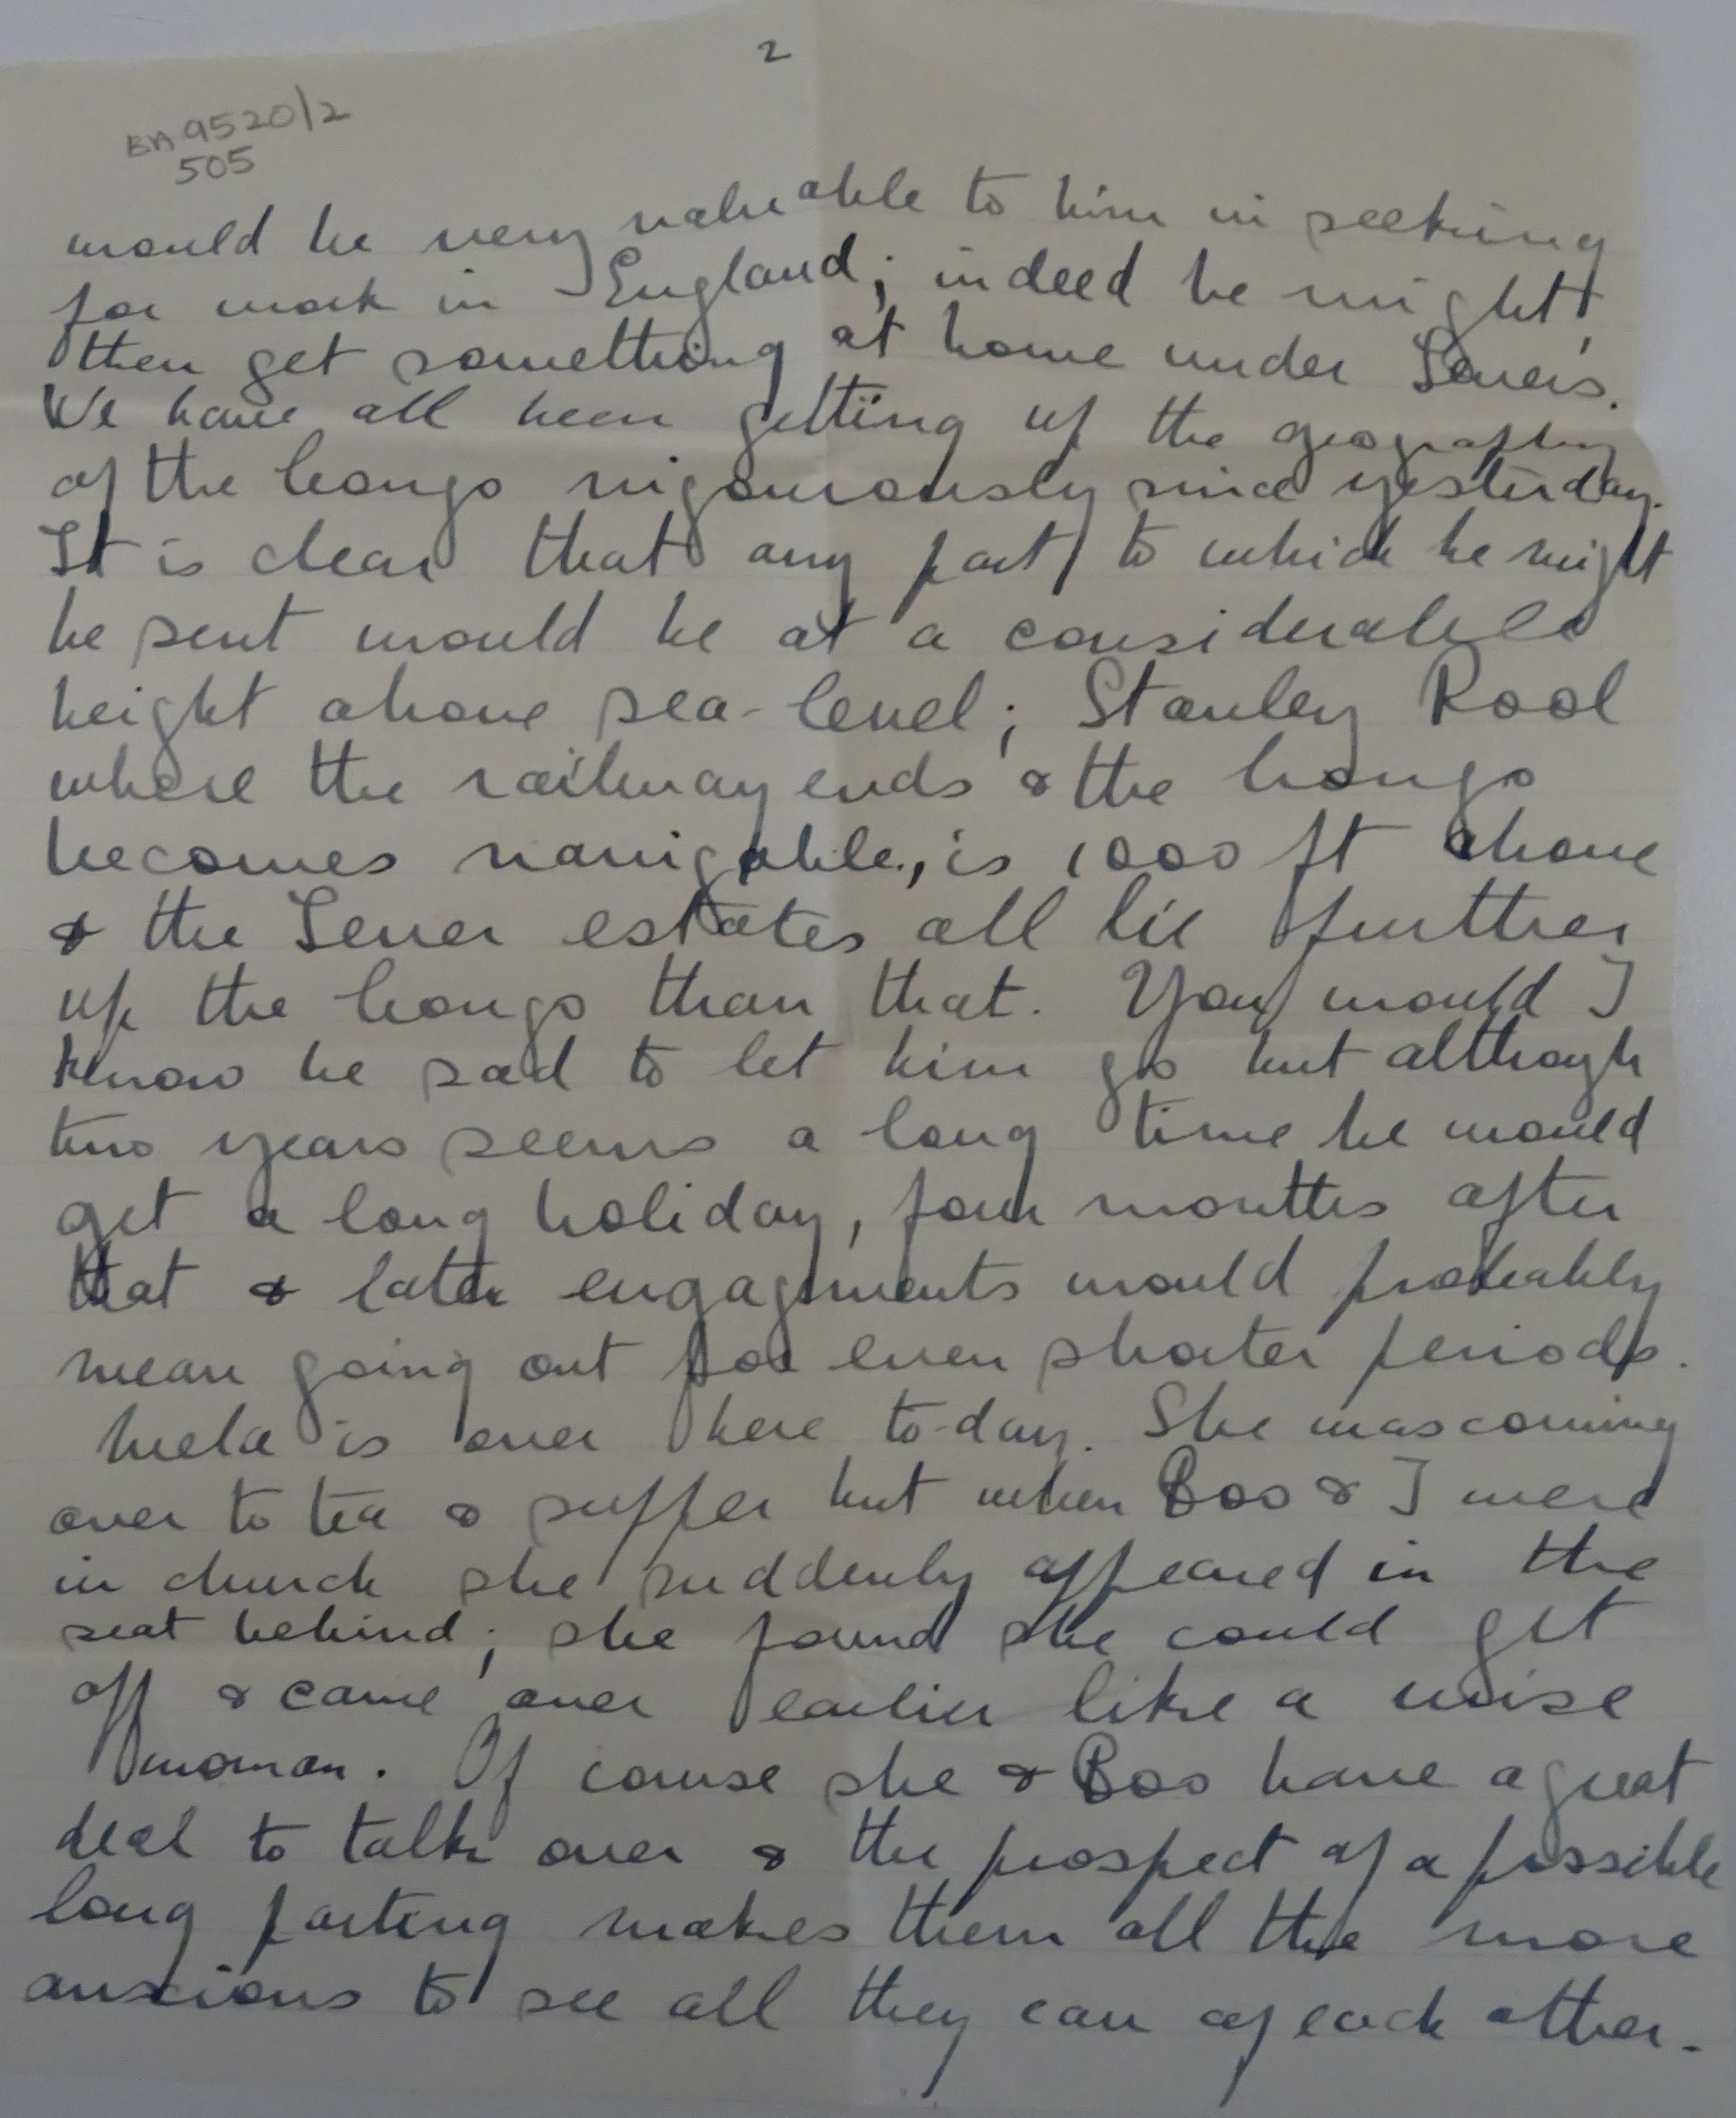 2
BA 9520/2
505
would be very valuable to him in seeking
for work in England; indeed he might,
then get something at home under Lever's.
We have all been getting up the geography
of the Congo vigourously since yesterday.
It is clear that any part to which he might
be sent would be at a considerable
height above sea-level; Stanley Pool
where the railway ends & the Congo
becomes navigable, is 1000 ft above
& the Lever estates all lie further
up the Congo than that. You would I
know be sad to let him go but although
two years seems a long time he would
get a long holiday, four months after
that & later engagements would probably
mean going out for even shorter periods.
Mela is over here to-day. She was coming
over to tea & supper but when Boo & I were
in church she suddenly appeared in the
seat behind; she found she could get
off & came over earlier like a wise
woman. Of course she & Boo have a great
deal to talk over & the prospect of a possible
long parting makes them all the more
anxious to see all they can of each other.